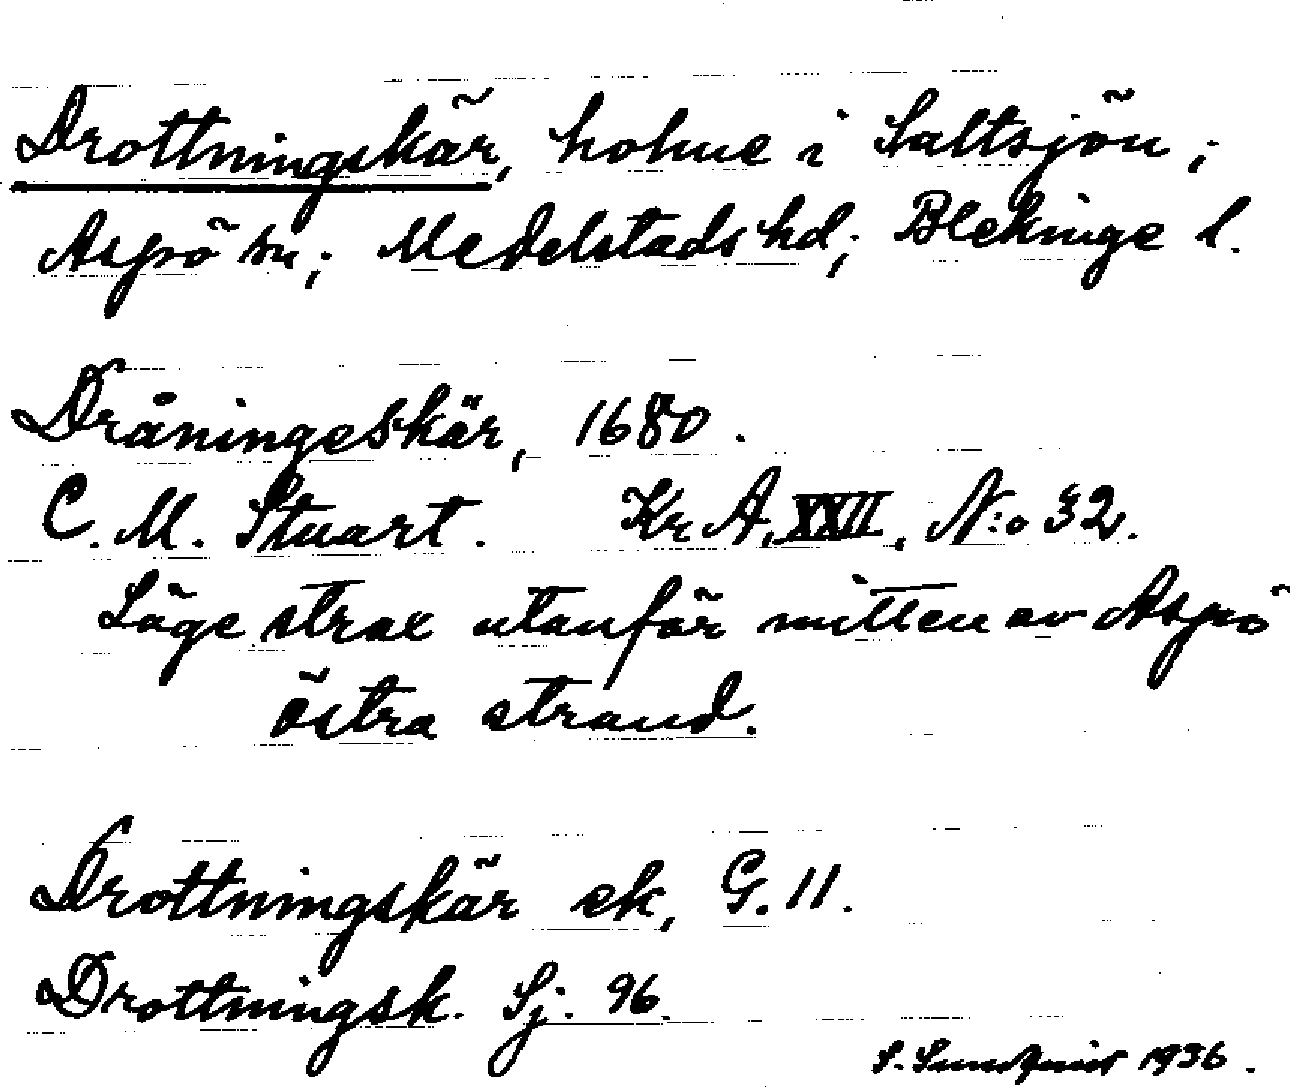 Drottningskär, holme i Saltsjön;
Aspö sn; Medelstads hd; Blekinge l.
Dråningeskär, 1680.
C. M. Stuart. Kr. A. XXII, N:o 32.
Läge strax utanför mitten av Aspö
östra strand.
Drottningskär ek, G. 11.
Drottningsk. Sj. 96.
S. 1936.